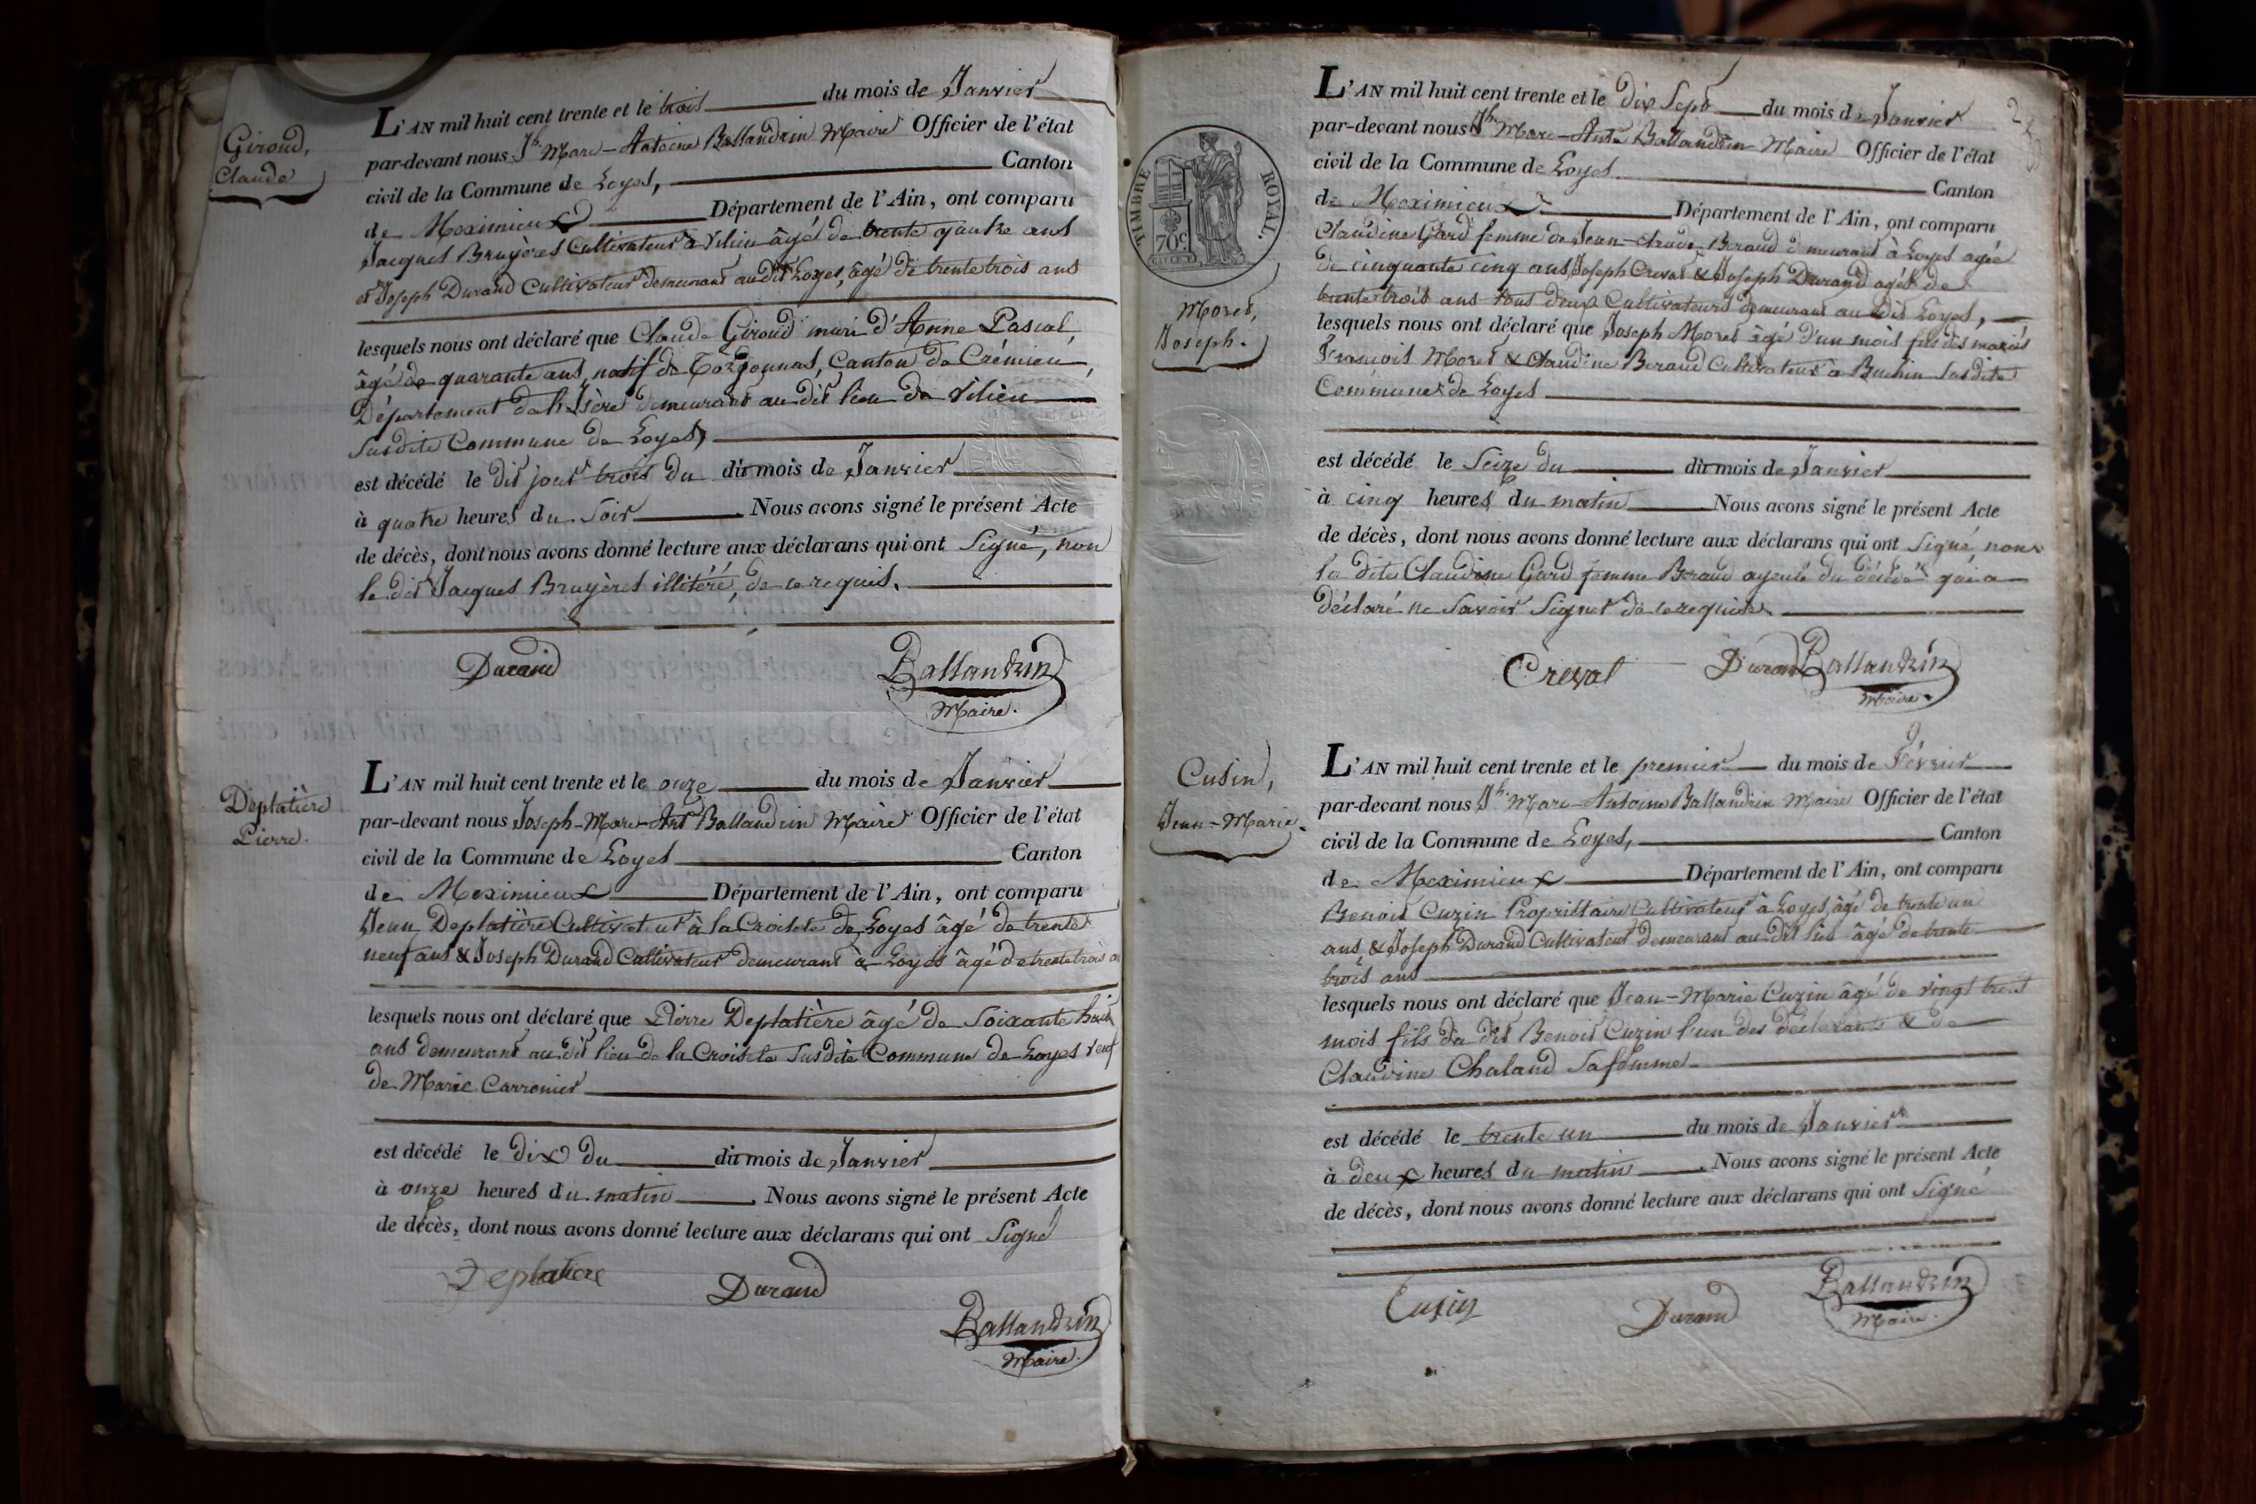 Giroud,
Claude
L'AN mil huit cent trente et le trois du mois de Janvier
par-devant nous Jh. Marc-Antoine Ballandrin Maire Officier de l'état
civil de la Commune de Loyes, Canton
de Meximieux Département de l'Ain, ont comparu
Jacques Bruyères Cultivateur à Vilieu âgé de trente quatre ans
et Joseph Durand Cultivateur demeurant au dit Loyes, âgé de trente trois ans
lesquels nous ont déclaré que Claude Giroud mari d'Anne Pascal,
âgé de quarante ans, natif de Canton de Crémieu,
Département de l'Isère demeurant au dit lieu de Vilieu
susdite Commune de Loyes,
est décédé le dit jour trois du dit mois de Janvier
à quatre heures du Soir Nous avons signé le présent Acte
de décès, dont nous avons donné lecture aux déclarans qui ont Signé, non
le dit Jacques Bruyères illitéré, de ce requis.
Durand Ballandrin
Maire.
Deplatière
Pierre.
L'AN mil huit cent trente et le onze du mois de Janvier
par-devant nous Joseph-Marc-Ant Ballandrin Maire Officier de l'état
civil de la Commune de Loyes Canton
de Meximieux Département de l'Ain, ont comparu
Jean Deplatière Cultivateur à la Croisete de Loyes âgé de trente
neuf ans & Joseph Durand Cultivateur demeurant à Loyes âgé de trente trois
lesquels nous ont déclaré que Pierre Deplatière âgé de Soixante huit
ans demeurant au dit lieu de la Croisete susdite Commune de Loyes veuf
de Marie Carronier
est décédé le dix du dit mois de Janvier
à onze heures du matin Nous avons signé le présent Acte
de décès, dont nous avons donné lecture aux déclarans qui ont Signé
Deplatiere Durand
Ballandrin
Maire.
TIMBRE ROYAL.
70c
Morel,
Joseph.
L'AN mil huit cent trente et le dix Sept du mois de Janvier
par-devant nous Jh. Marc-Ante Ballandrin Maire Officier de l'état
civil de la Commune de Loyes Canton
de Meximieux Département de l'Ain, ont comparu
Claudine Gard femme de Jean-Claude Beraud demeurant à Loyes agée
de cinquante cinq ans, Joseph Creval & Joseph Durand agés de
trente trois ans tous deux Cultivateurs demeurant au dit Loyes,
lesquels nous ont déclaré que Joseph Morel âgé d'un mois fils des mariés
François Morel & Claudine Beraud Cultivateurs à Buchin susdite
Commune de Loyes
est décédé le Seize du dit mois de Janvier
à cinq heures du matin Nous avons signé le présent Acte
de décès, dont nous avons donné lecture aux déclarans qui ont Signé, non
la dite Claudine Gard femme Beraud ayeule du décédé qui a
déclaré ne Savoir Signer de ce requise.
Creval Durand Ballandrin
Maire.
Cusin,
Jean-Marie.
L'AN mil huit cent trente et le premier du mois de Février
par-devant nous Jh. Marc-Antoine Ballandrin Maire Officier de l'état
civil de la Commune de Loyes, Canton
de Meximieux Département de l'Ain, ont comparu
Benoit Cuzin Propriétaire Cultivateur à Loyes, âgé de trente un
ans, & Joseph Durand Cultivateur demeurant au dit lieu âgé de trente
trois ans
lesquels nous ont déclaré que Jean-Marie Cuzin âgé de vingt
mois fils du dit Benoit Cuzin l'un des déclarants & de
Claudine Chaland Sa femme
est décédé le trente un du mois de Janvier
à deux heures du matin Nous avons signé le présent Acte
de décès, dont nous avons donné lecture aux déclarans qui ont Signé
Cusin Durand Ballandrin
Maire.